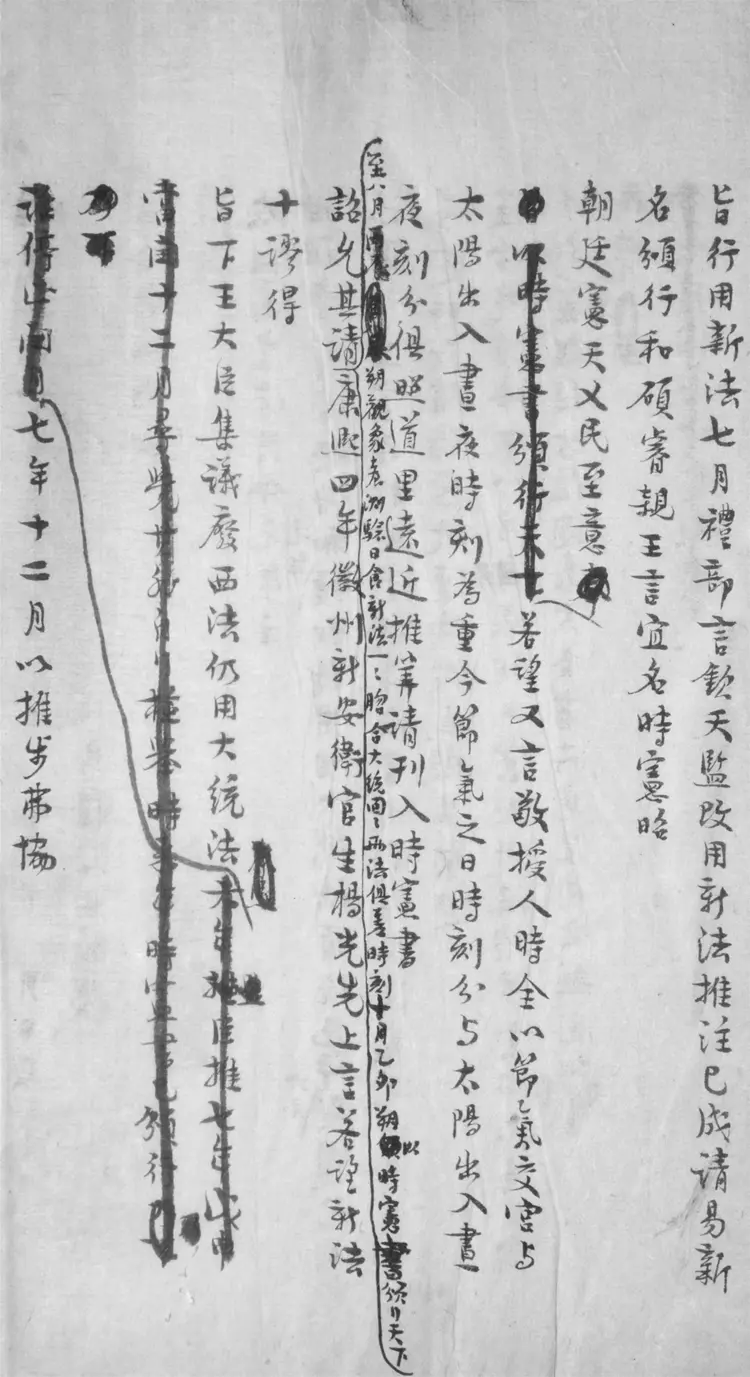 旨行用新法七月禮部言欽天監改用新法推注已成請易新
名頒行和碩睿親王言宜名時憲昭
朝廷憲天乂民至意
以時憲書頒行天下若望又言敬授人時全以節氣交宮与
太陽出入晝夜時刻為重今節氣之日時刻分与太陽出入晝
夜刻分俱照道里遠近推筭請刊入時憲書
至八月丙辰朔觀象台測驗日食新法一〻脗合大統回〻兩法俱差時刻十月乙卯朔以時憲書頒行天下
詔允其請康熙四年徽州新安衛官生楊光先上言若望新法
十謬得
旨下王大臣集議廢西法仍用大統法
推七年
當閏十二月尋覺 時 頒行
閏月七年十二月以推步弗協